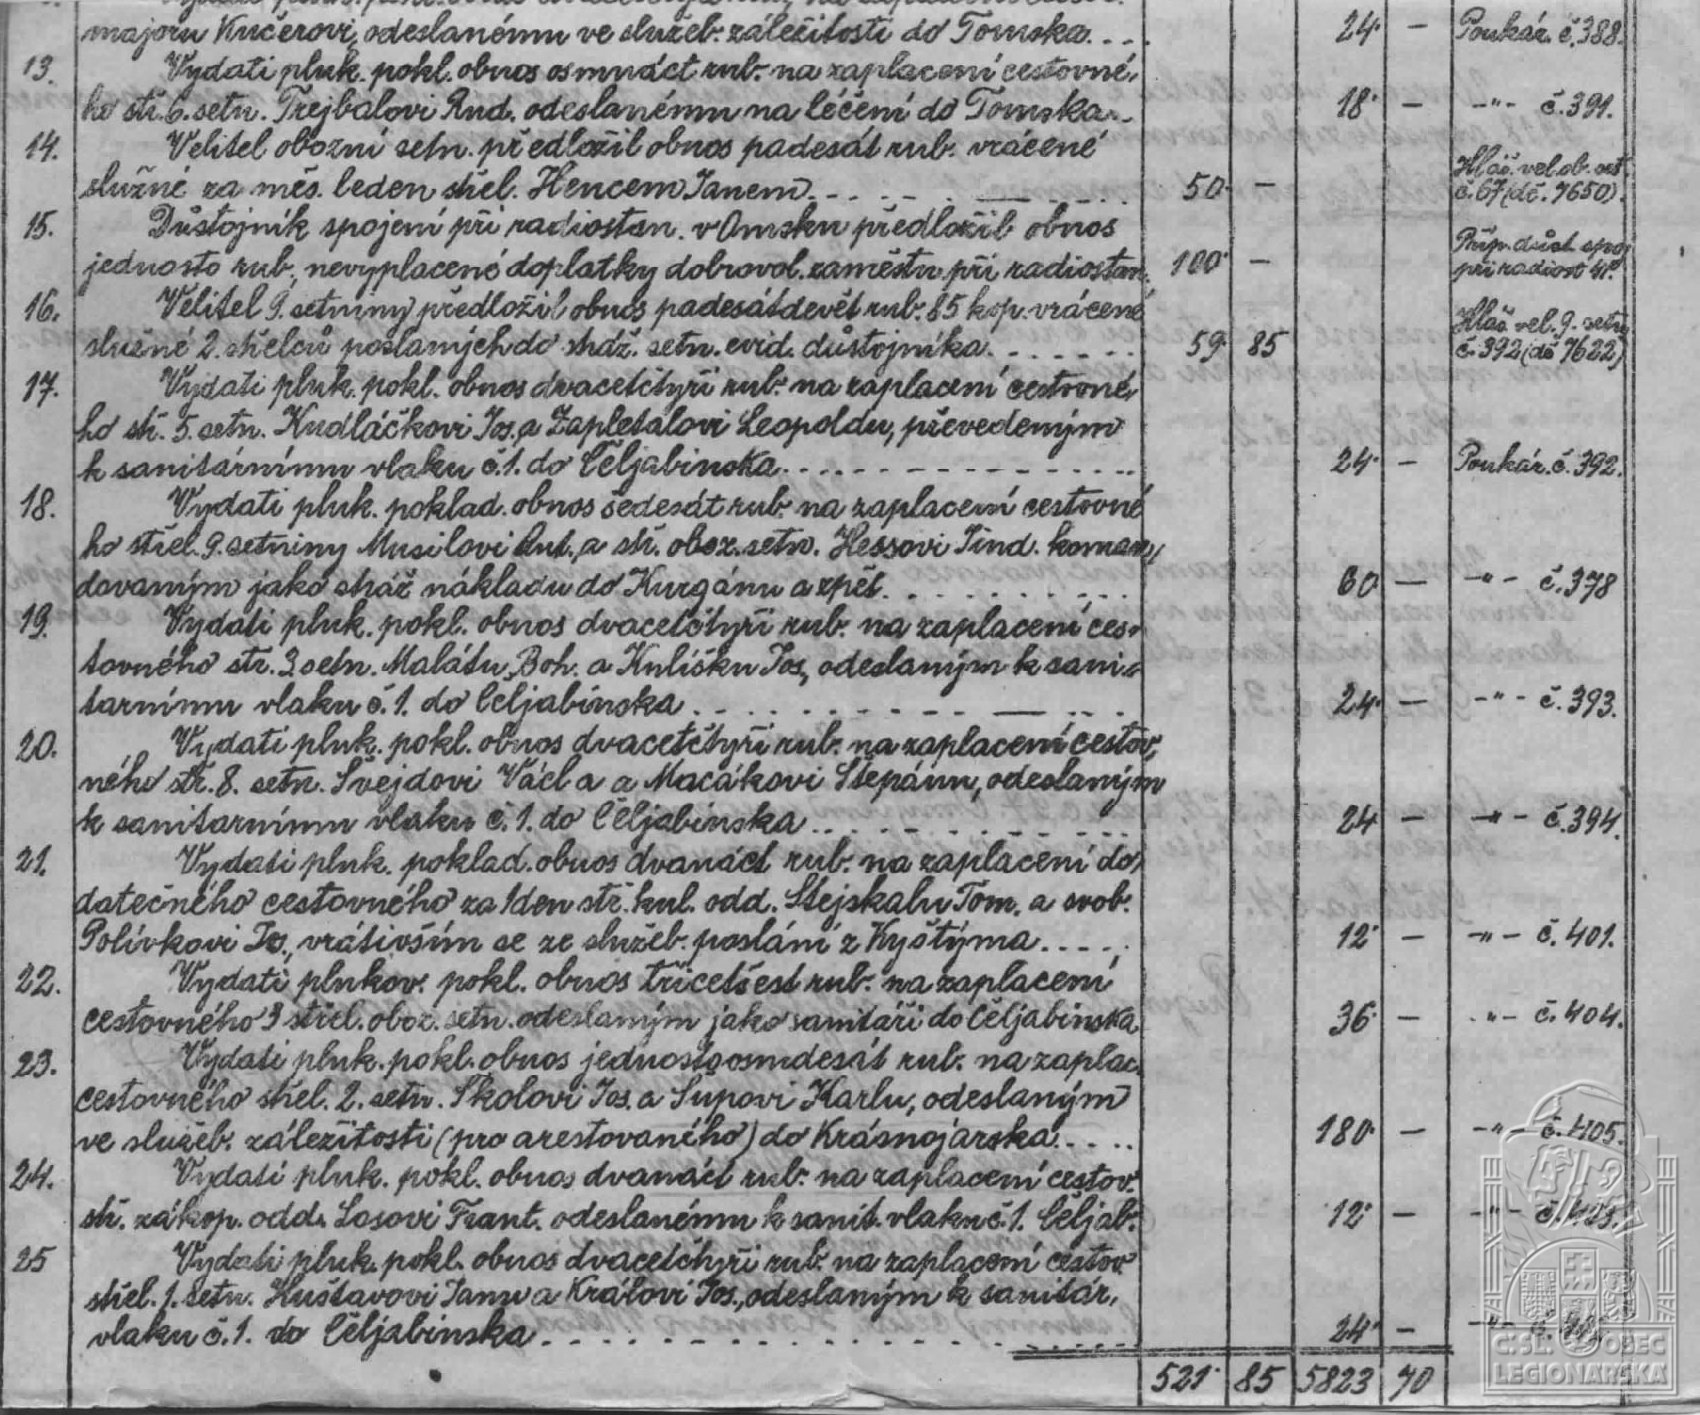 majoru Kučerovi, odeslanému ve služeb. záležitosti do Tomska. . . . 24· — Poukáz. č. 388.
13. Vydati pluk. pokl. obnos osmnáct rub. na zaplacení cestovné,
ho stř. 6. setn. Trejbalovi Rud. odeslanému na léčení do Tomska. . 18· — -"- č. 391.
14. Velitel obozní setn. předložil obnos padesát rub. vrácené
služné za měs. leden střel. Hencem Janem. . . . 50· — Hláš. vel. ob. set. č. 67 (dč. 7650).
15. Důstojník spojení při radiostan. v Omsku předložil obnos
jednosto rub., nevyplacené doplatky dobrovol. zaměstn. při radiostan. 100· — Příp. důst. spoj. při radiost.
16. Velitel 9. setniny předložil obnos padesátdevět rub. 85 kop. vrácené
služné 2. střelců poslaných do shdž. setn. evid. důstojníka. . . . 59· 85 Hláš. vel. 9. setn. č. 392 (dč 7622)
17. Vydati pluk. pokl. obnos dvacetčtyři rub. na zaplacení cestovné,
ho stř. 5. setn. Kudláčkovi Jos. a Zapletalovi Leopoldu, převedeným
k sanitárnímu vlaku č. 1. do Čeljabinska. . . . 24· — Poukáz. č. 392.
18. Vydati pluk. poklad. obnos šedesát rub. na zaplacení cestovné
ho střel. 9. setniny Musilovi Ant., a stř. oboz. setn. Hessovi Jind. koman,
dovaným jako stráž nákladu do Kurgánu a zpět. . . . 60 — -"- č. 378
19. Vydati pluk. pokl. obnos dvacetčtyři rub. na zaplacení ces-
tovného str. 3 setn. Malátu, Boh. a Kulišku Jos, odeslaným k sani-
tarnímu vlaku č. 1. do Čeljabinska. . . . 24· — -"- č. 393.
20. Vydati pluk. pokl. obnos dvacetčtyři rub. na zaplacení cestov,
ného stř. 8. setn. Švejdovi Václ a a Macákovi Štěpánu, odeslaným
k sanitarnímu vlaku č. 1. do Čeljabinska. . . . 24 — -"- č. 394.
21. Vydati pluk. poklad. obnos dvanáct rub. na zaplacení do,
datečného cestovného za 1 den stř. kul. odd. Stejskalu Tom. a svob.
Polívkovi Jos., vrátivším se ze služeb. poslání z Kyštýma. . . . 12· — -"- č. 401.
22. Vydati plukov. pokl. obnos třicetšest rub. na zaplacení
cestovného 3 střel. oboz. setn. odeslaným jako sanitáři do Čeljabinska 36· — -"- č. 404.
23. Vydati pluk. pokl. obnos jednostoosmdesát rub. na zaplac.
cestovného střel. 2. setn. Školovi Jos. a Šupovi Karlu, odeslaným
ve služeb. záležitosti (pro arestovaného) do Krásnojarska. . . . 180· — -"- č. 405.
24. Vydati pluk. pokl. obnos dvanáct rub. na zaplacení cestov.
stř. zákop. odd. Losovi Frant. odeslanému k sanit. vlaku č. 1. Čeljab. 12· — -"- č. 403.
25 Vydati pluk. pokl. obnos dvacetčtyři rub. na zaplacení cestov
střel. 1. setn. Huštavovi Janu a Královi Jos., odeslaným k sanitár,
vlaku č. 1. do Čeljabinska. . . . 24· — -"- č.
521· 85 5823 70
Č. SL. OBEC
LEGIONÁŘSKÁ